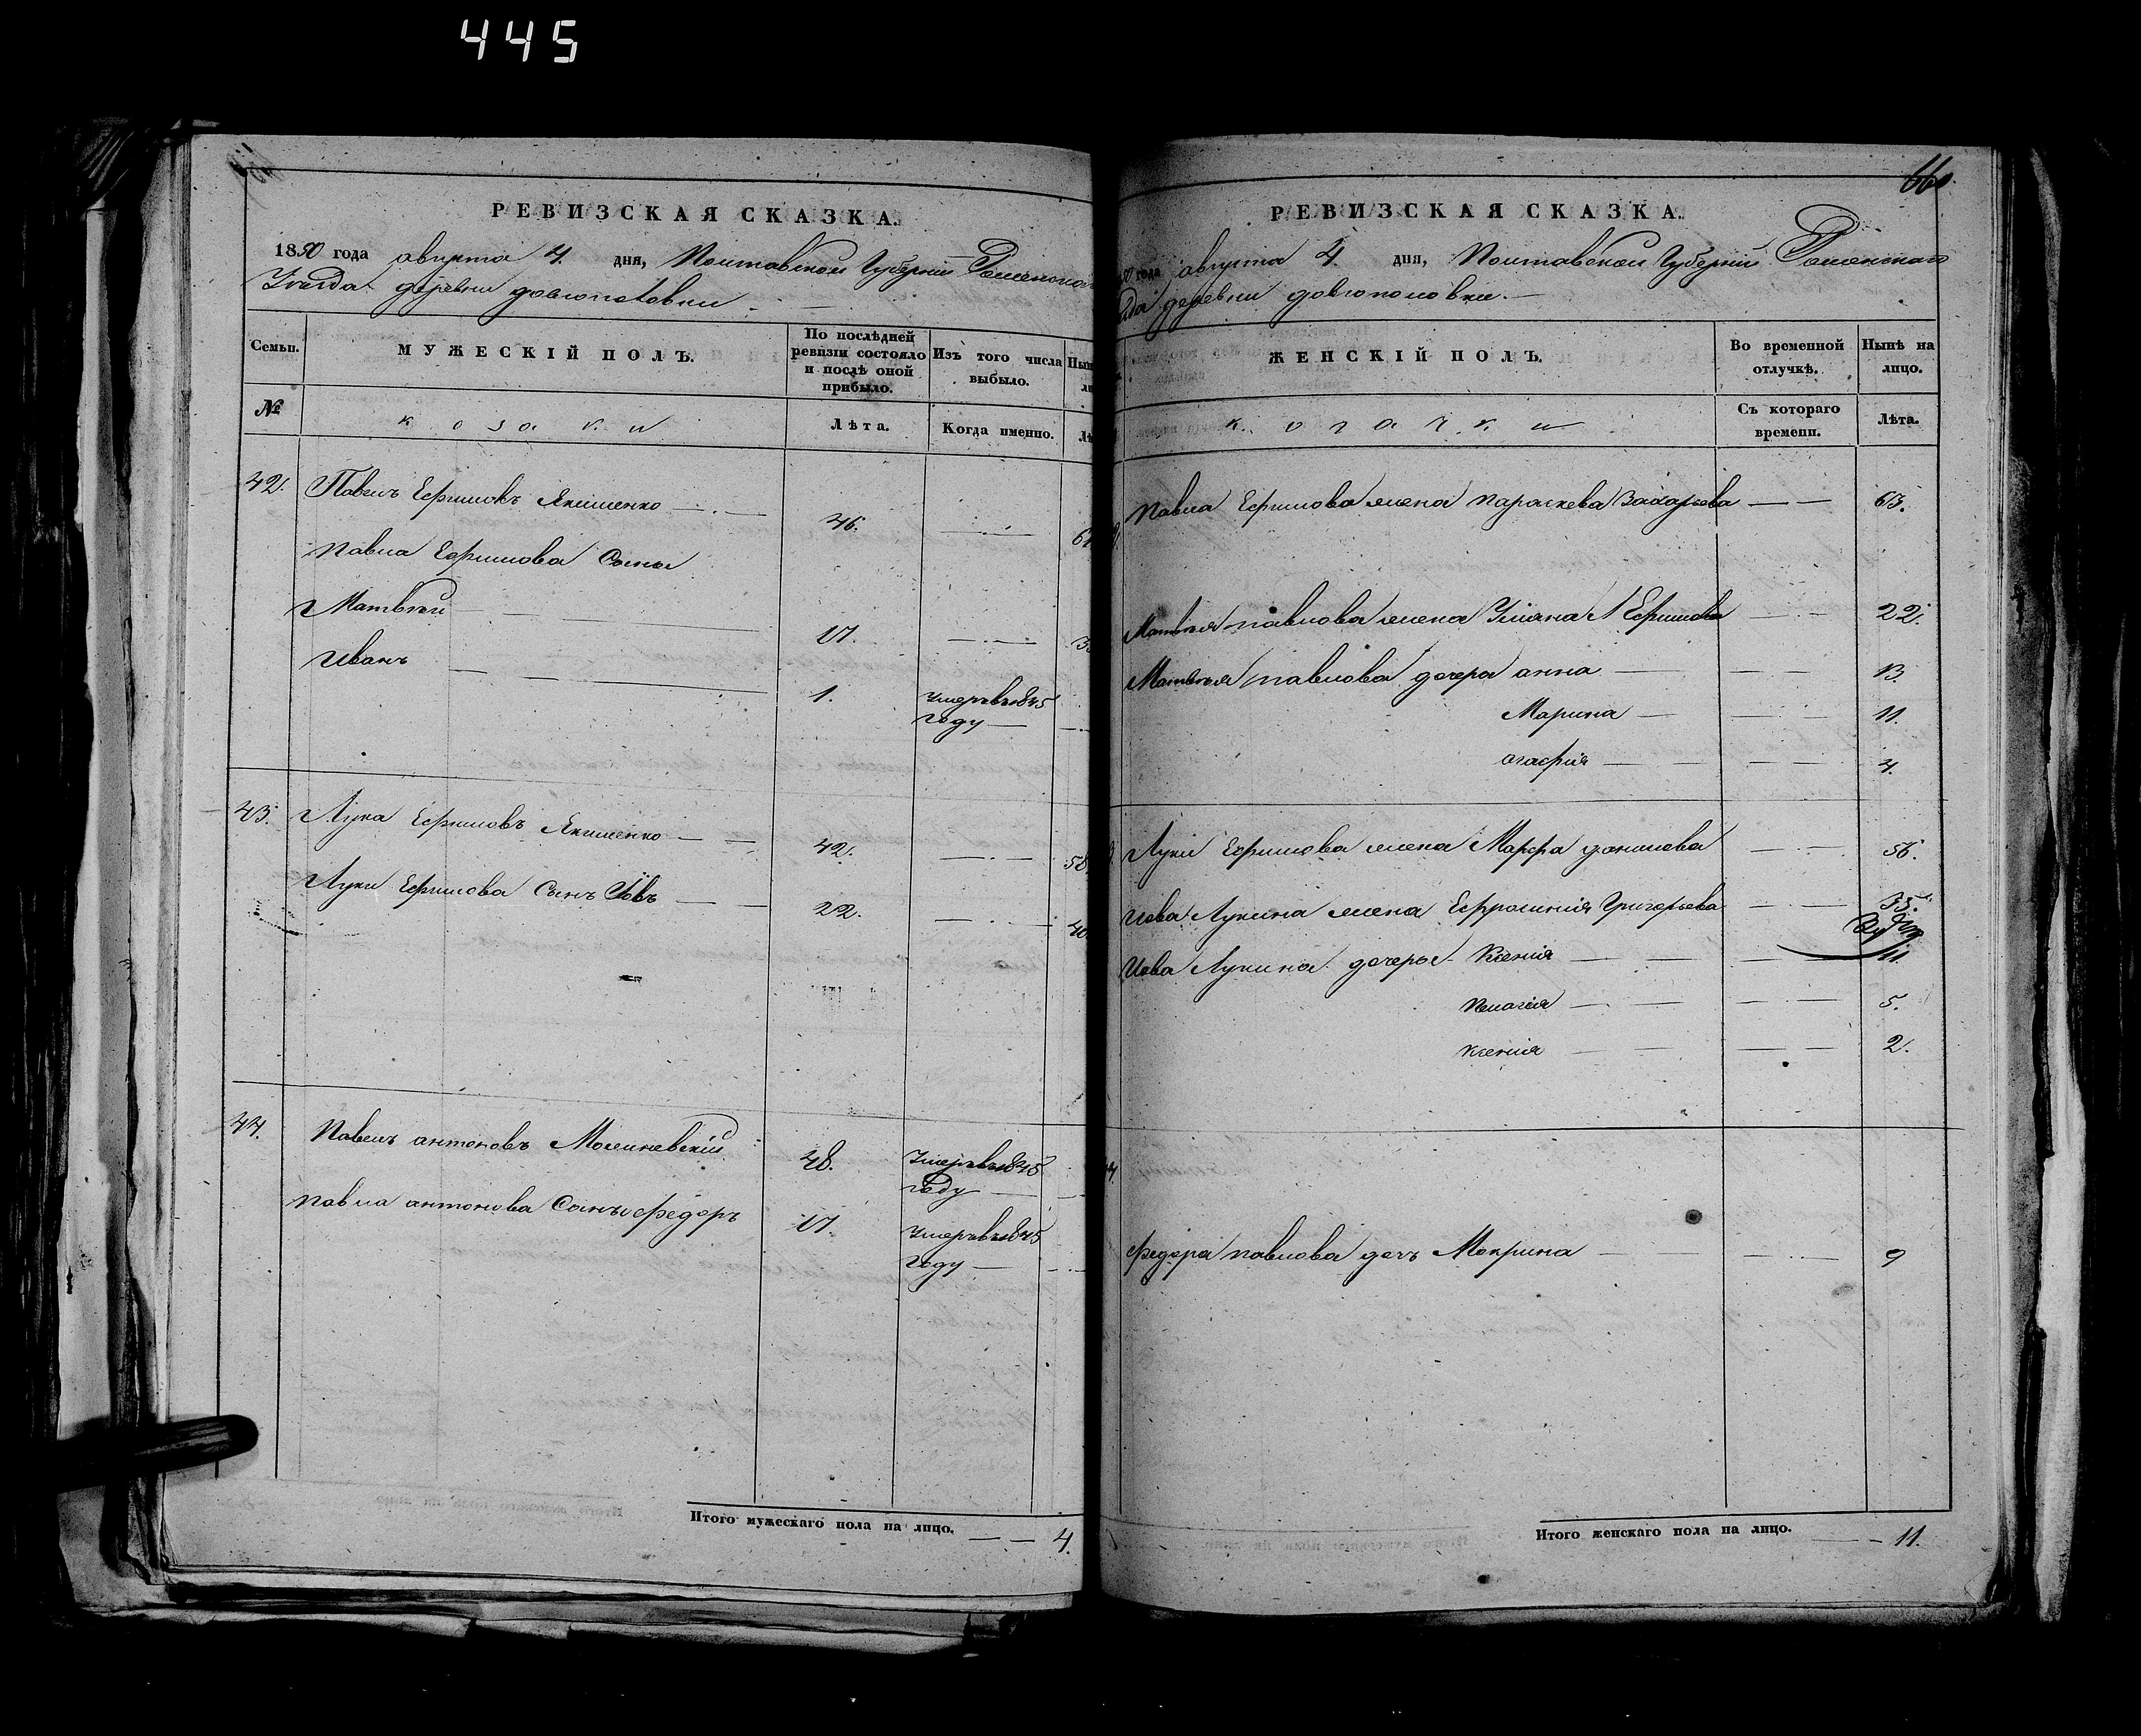 445
РЕВИЗСКАЯ СКАЗКА.
1850 года августа 4. дня, Полтавской Губерніи Роменскаго
Уезда деревни довгополовки
Семьи.
МУЖЕСКІЙ ПОЛЪ.
По послѣдней ревизіи состояло и послѣ оной прибыло.
Изъ того числа выбыло.
№
козаки
Лѣта.
Когда именно.
42. Павелъ Ефимовъ Якименко 46.
Павла Ефимова Сыны
Матвѣй 17.
Иванъ 1. умеръ въ 1845
году
43. Лука Ефимовъ Якименко 42. 58
Луки Ефимова Сынъ Іовъ 22. 40
44. Павелъ антоновъ 48. Умеръ въ 1845
году
павла антонова Сынъ федоръ 17. Умеръ въ 1845
году
Итого мужескаго пола на лицо. 4.
660
РЕВИЗСКАЯ СКАЗКА.
года августа 4. дня, Полтавской Губерніи Роменскаго
деревни довгополовки.
ЖЕНСКІЙ ПОЛЪ.
Во временной отлучкѣ.
Нынѣ на лицо.
козачки
Съ котораго времени.
Лѣта.
Павла Ефимова жена параскева Захарьева 63.
Матвѣя павлова жена Ульяна Ефимова 22.
Матвѣя павлова дочера анна 13.
Марина 11.
агафия 4.
Луки Ефимова жена Марфа данилова 56.
Иова Лукина жена Ефросинія Григорьева 33.
Иова Лукина дочеры Ксенія 11.
Пелагія 5.
ксенія 2.
федора павлова дочь Макрина 9
Итого женскаго пола на лицо. 11.